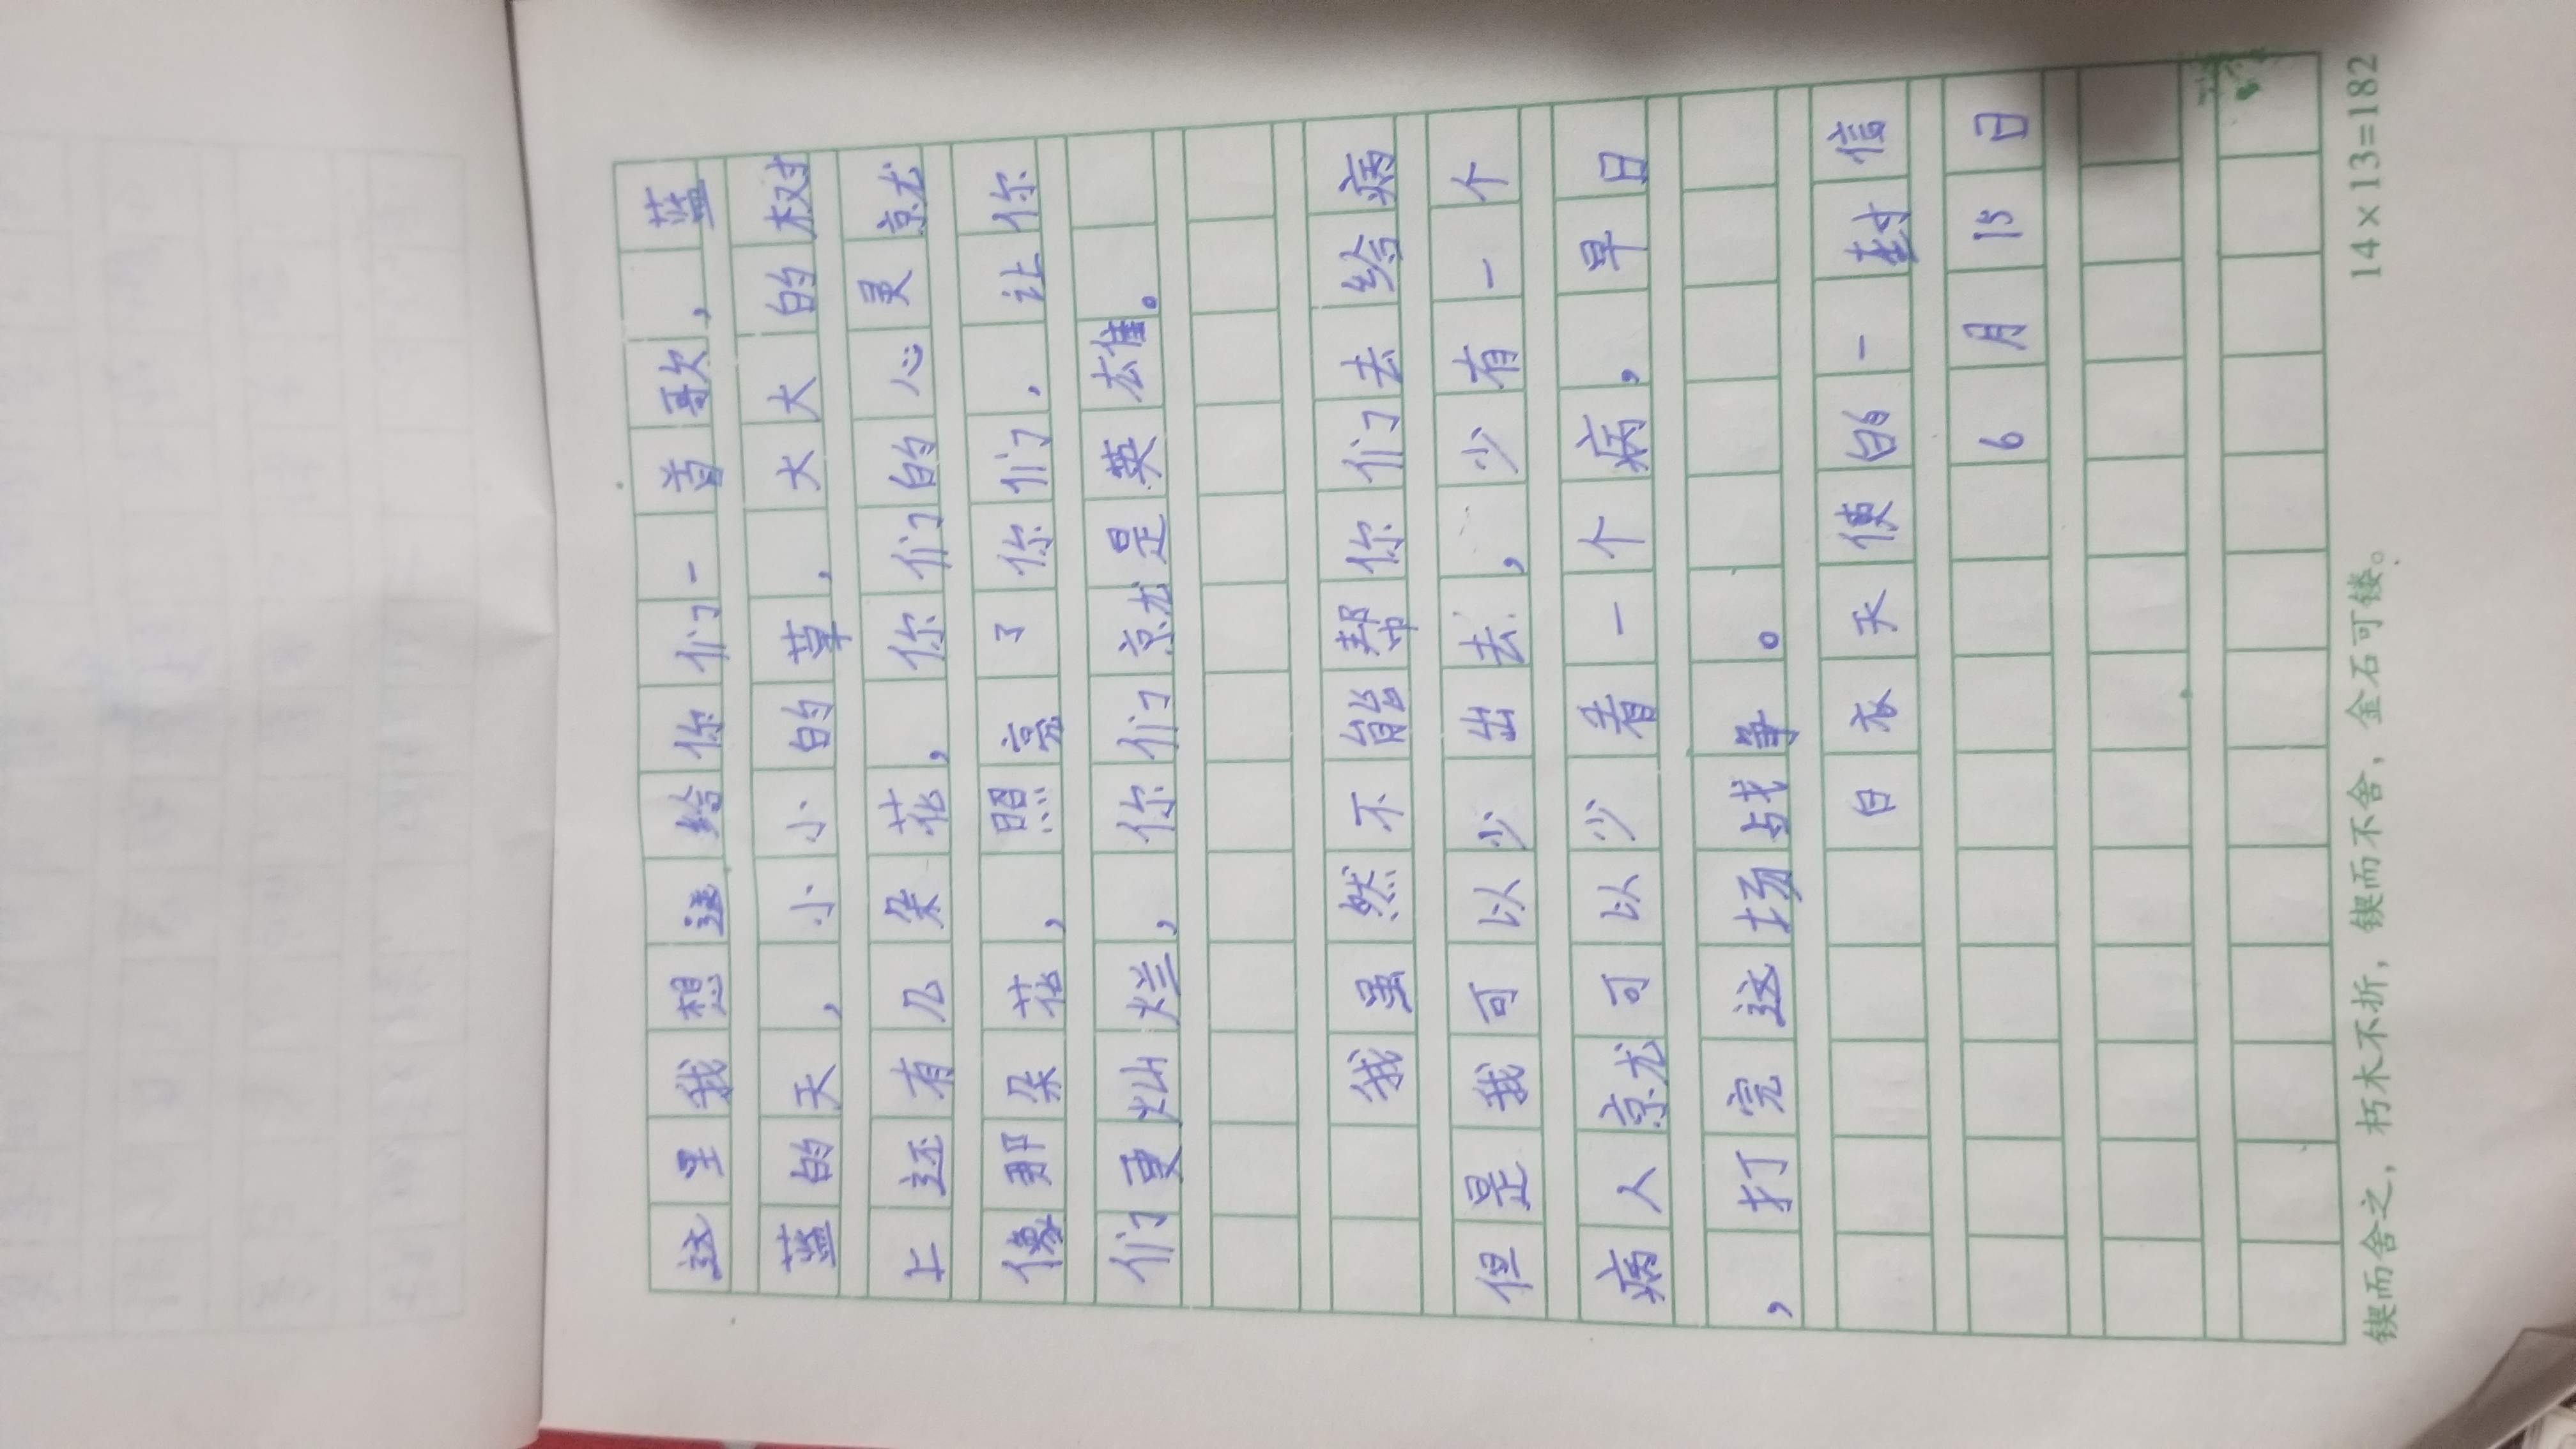 这里我想送给你们一首歌，蓝
蓝的天，小小的草，大大的树
上还有几朵花，你们的心灵就
像那朵花，照亮了你们，让你
们更灿烂，你们就是英雄。
我虽然不能帮你们去给病
但是我可以少出去，少有一个
病人就可以少看一个病，早日
，打完这场战争。
白衣天使的一封信
6月15日
锲而舍之，朽木不折，锲而不舍，金石可镂。 14×13=182